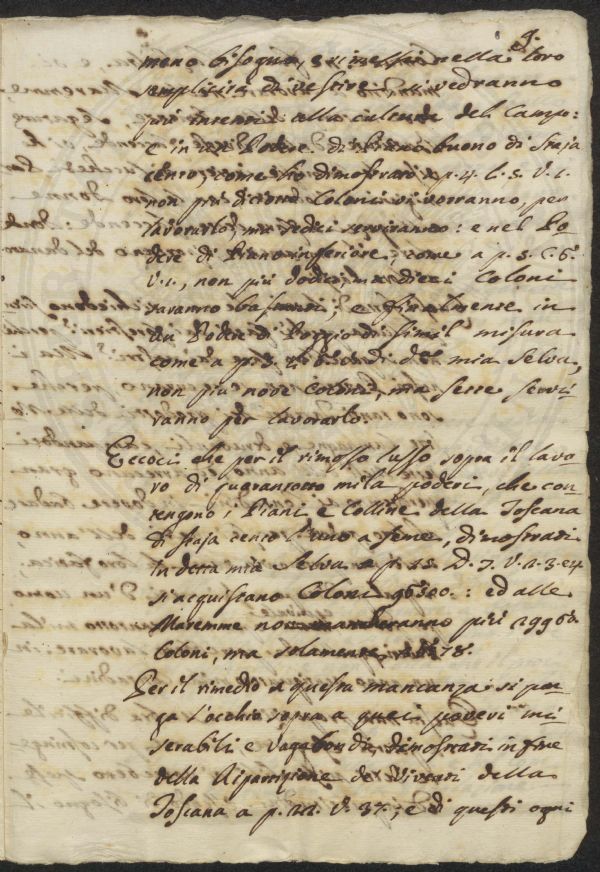 9.
meno bisogno, e rimessi nella loro
semplicità di vestire, si vedranno
più intenti alla cultura del Campo:
e in un Podere di Piano buono di staja
cento, come ho dimostrato a p. 4. C. 5. V. 1.
non più dicioto Coloni vi vorranno, per
lavorarlo, ma sedici serviranno: e nel Po-
dere di Piano inferiore, come a p. 5. C. 6.
V. 1., non più dodici, ma dieci Coloni
saranno bastanti; e finalmente in
un Podere di Poggio di simil misura
come a p. 5. di detta mia Selva,
non più nove Coloni, ma sette servi
ranno per lavorarlo.
Eccoci che per il rimosso lusso sopra il lavo-
ro di quarantotto mila poderi, che con-
tengono i Piani e Colline della Toscana
di staja cento l'uno a seme, dimostrati
in detta mia Selva a p. 15. D. 7. V. 2. 3. e 4
si acquistano Coloni 96500.: ed alle
Maremme non mancheranno più 29960.
Coloni, ma solamente
Per il rimedio a questa mancanza si por-
ga l'occhio sopra a quei poveri mi-
serabili e vagabondi, dimostrati in fine
della Ripartizione de Viventi della
Toscana a p. 22. V. 37.; e di questi ogni